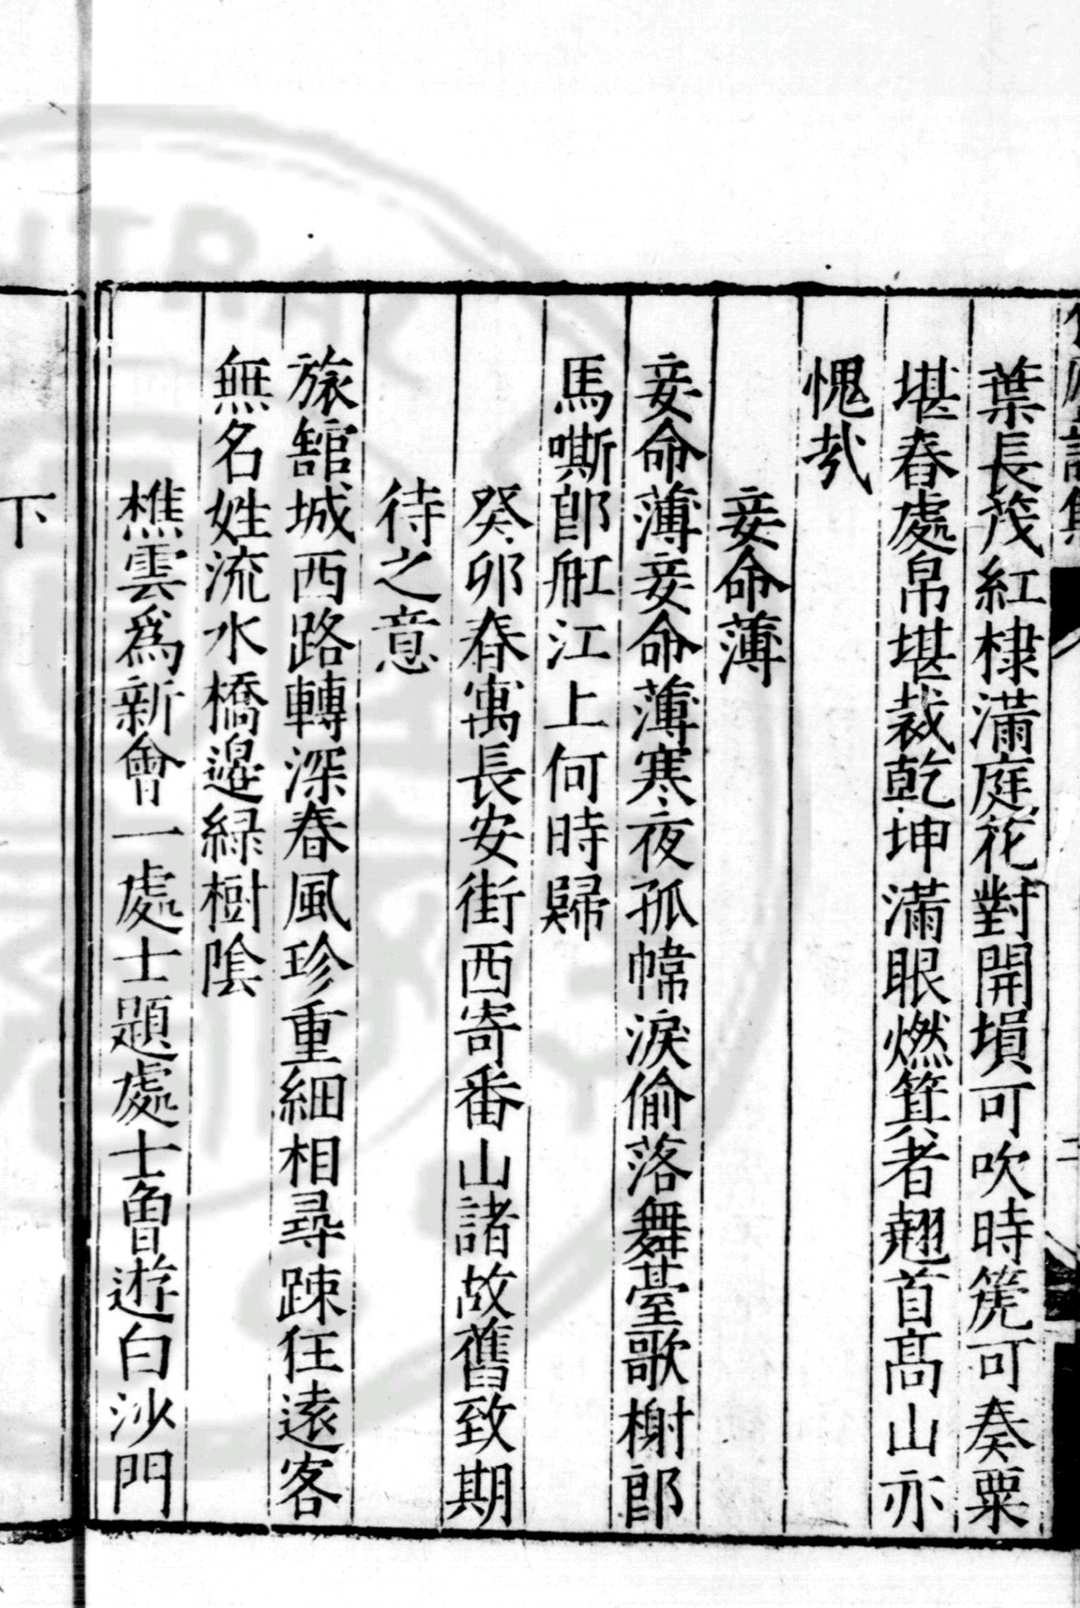 葉長茂紅棣滿庭花對開塤可吹時箎可奏粟
堪舂處帛堪裁乾坤滿眼燃箕者翹首高山亦
愧㢤
妾命薄
妾命薄妾命薄寒夜孤幃淚偷落舞臺歌榭郎
馬嘶郎舡江上何時歸
癸卯春寓長安街西寄番山諸故舊致期
待之意
旅舘城西路轉深春風珍重細相尋踈狂遠客
無名姓流水橋邉緑樹陰
樵雲爲新會一處士題處士魯遊白沙門
下